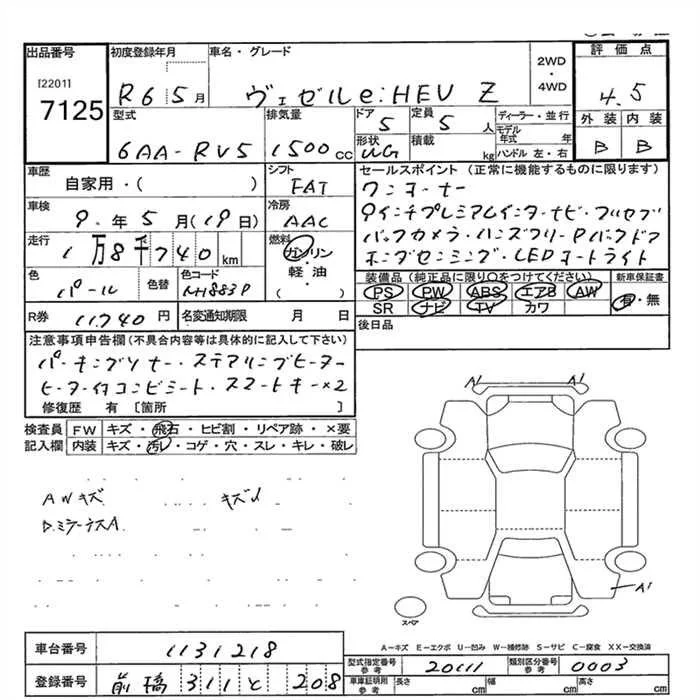 出品番号
[2201]
7125
初度登録年月
R6 5月
車名・グレード
ヴェゼル e:HEV Z
2WD
・
4WD
評価点
4.5
外装 内装
B B
型式
6AA-RV5
排気量
1500cc
ドア
5
定員
5人
形状
WG
積載
kg
ディーラー・並行
モデル年式 年
ハンドル 左・右
車歴
自家用・( )
シフト
FAT
車検
9.年5月(19日)
冷房
AAC
走行
1万8千740km
燃料
ガソリン
・
軽・油
( )
色
パール
色替
色コード
NH883P
R券
11,740円
名変通知期限 月 日
セールスポイント (正常に機能するものに限ります)
ワンオーナー
9インチプレミアムインターナビ・フルセグ
バックカメラ・ハンズフリーPバックドア
ホンダセンシング・LEDオートライト
装備品(純正品に限り○をつけてください)
新車保証書
PS PW ABS エアB AW
有・無
SR ナビ TV カワ
後日品
注意事項申告欄(不具合内容等は具体的に記入して下さい)
パーキングソナー・ステアリングヒーター
ヒーター付コンビシート・スマートキー×2
修復歴 有 [箇所 ]
検査員 記入欄
FW キズ・飛石・ヒビ割・リペア跡・×要
内装 キズ・汚レ・コゲ・穴・スレ・キレ・破レ
AWキズ
キズU
D.ミラーキズA
A1 A1
A1
スペア
A…キズ E…エクボ U…凹み W…補修跡 S…サビ C…腐食 XX…交換済
車台番号
1131218
登録番号
前橋 311 と 208
型式指定番号 参考
20111
類別区分番号 参考
0003
車庫証明用 参考
長さ cm
幅 cm
高さ cm